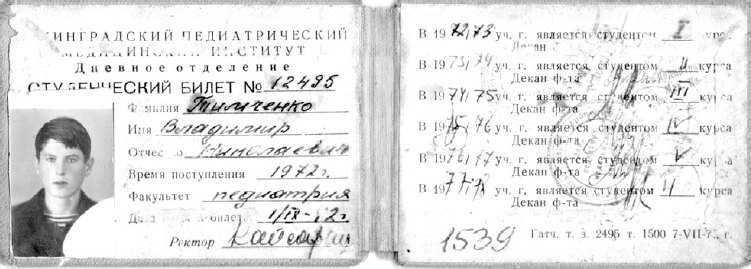 НИНГРАДСКИЙ ПЕДИАТРИЧЕСКИЙ
МЕДИЦИНСКИЙ ИНСТИТУТ
Дневное отделение
СТУДЕНЧЕСКИЙ БИЛЕТ № 12495
Фамилия Тимченко
Имя Владимир
Отчество Николаевич
Время поступления 1972г.
Факультет педиатрия
Дата билета 1/IX-72г.
Ректор
В 1972/73 уч. г. является студентом I курса
Декан
В 1973/74 уч. г. является студентом II курса
Декан ф-та
В 1974/75 уч. г. является студентом III курса
Декан ф-та
В 1975/76 уч. г. является студентом IV курса
Декан ф-та
В 1976/77 уч. г. является студентом V курса
Декан ф-та
В 1977/78 уч. г. является студентом курса
Декан ф-та
1539
Гатч. т. з. 2495 т. 1500 7-VII-7 г.